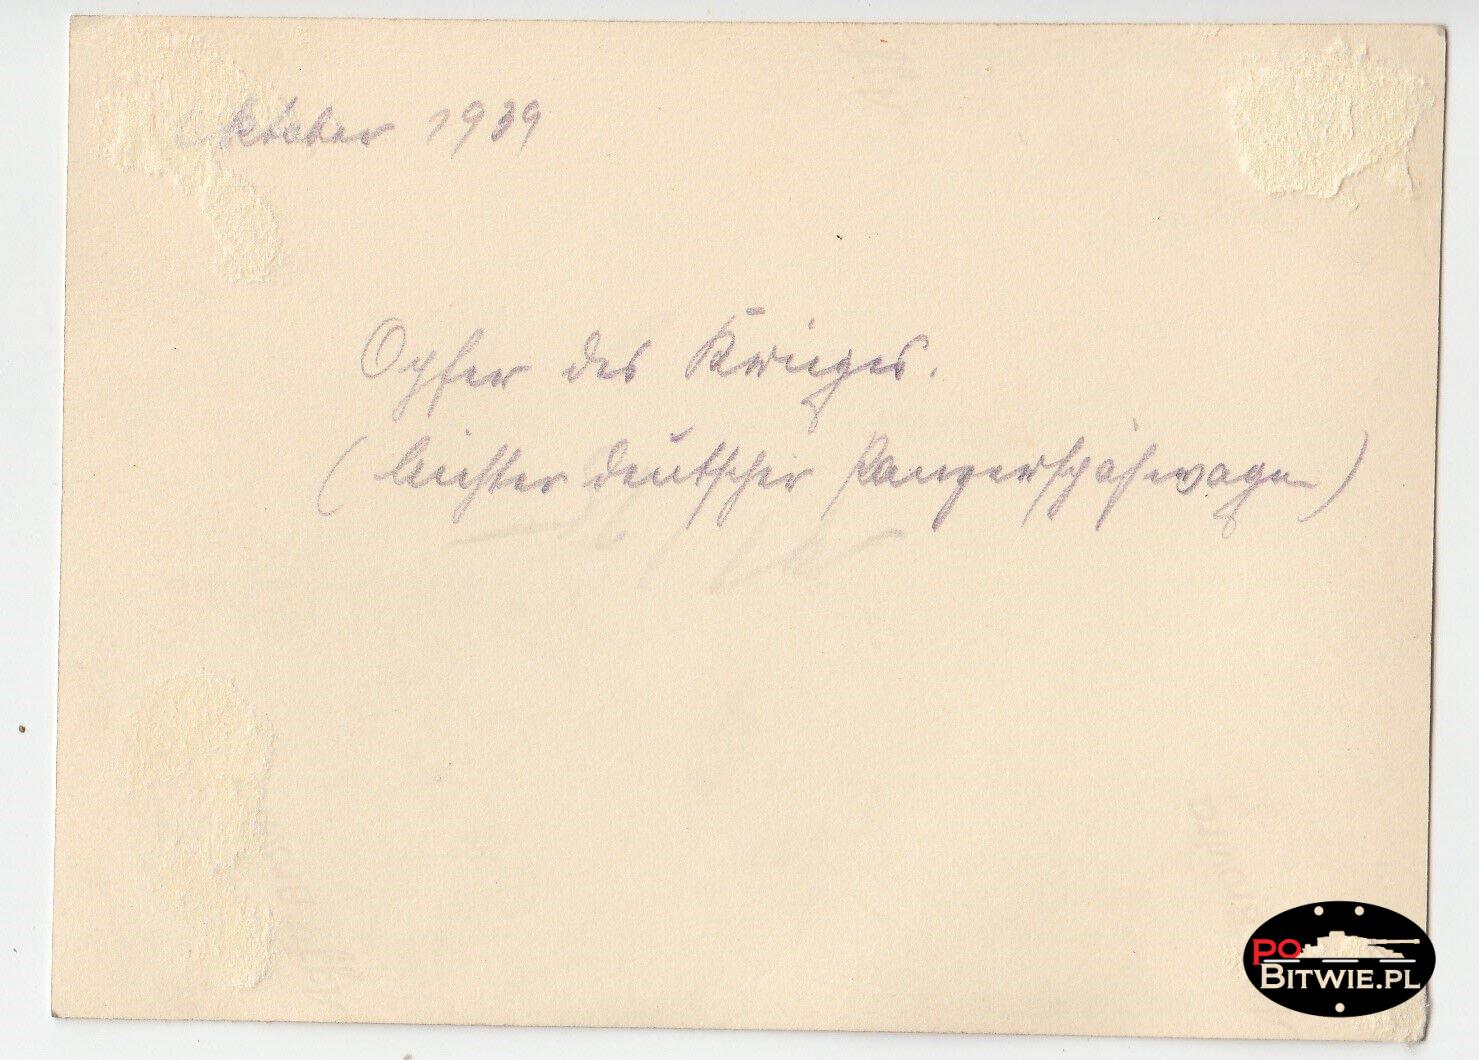 Oktober 1939
Opfer des Krieges.
(leichter deutscher Panzerspähwagen)
PO
BITWIE.PL